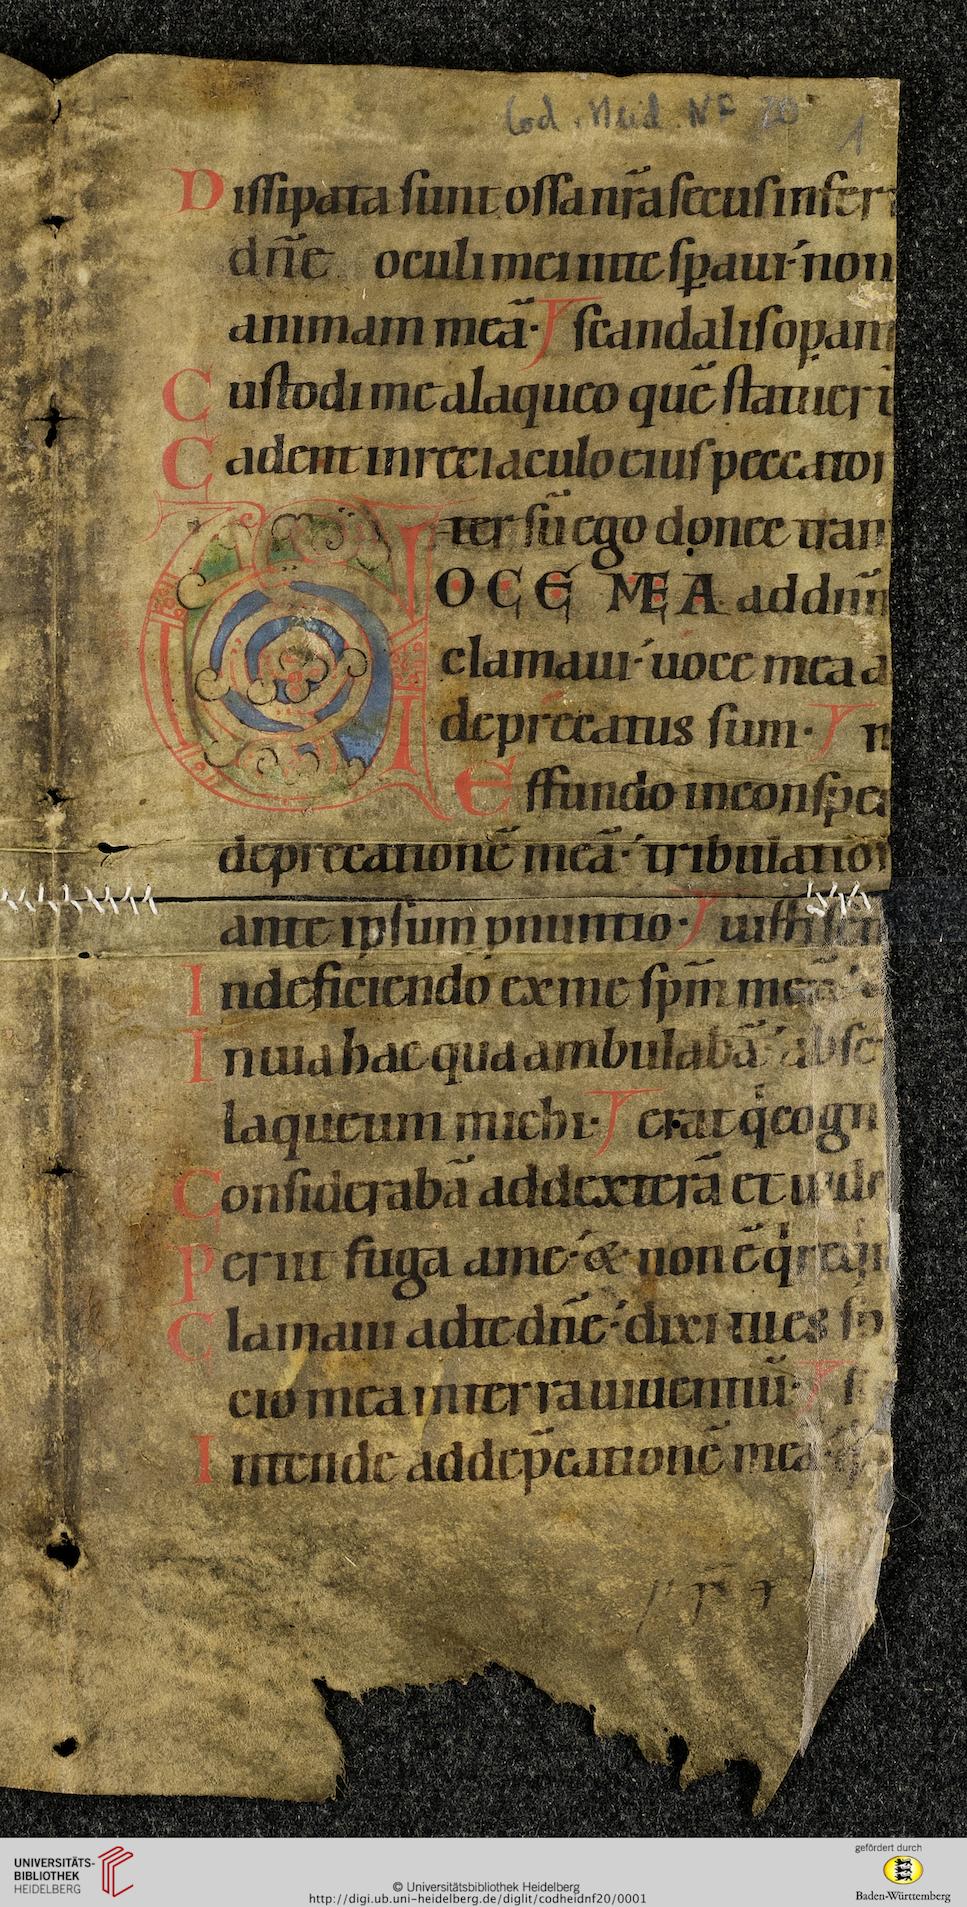 Cod. Heid. NF 20
1
Dissipata sunt ossa nr̃a secus infer
dñe oculi mei in te sp̱aui· non
animam meã· scandalis op̱an
Custodi me a laqueo quẽ statuer
Cadent in reciaculo eius peccator
ter sũ ego donec tran
VOCE MEA ad dñm
clamaui· uoce mea a
deprecatus sum·
Effundo in conspec
deprecationẽ meã· tribulation
ante ipsum pnuntio·
In deficiendo ex me spm̃ meũ
In uia hac qua ambulabã· abs
laqueum michi· erat q̇ cogn
Considerabã ad dexterã et uide
Periit fuga a me· & non ẽ q̇ req̇
Clamaui ad te dñe· dixi tu es sp
cio mea in terra uiuentiũ·
Intende ad dep̃cationẽ meã
UNIVERSITÄTS-
BIBLIOTHEK
HEIDELBERG
© Universitätsbibliothek Heidelberg
http://digi.ub.uni-heidelberg.de/diglit/codheidnf20/0001
gefördert durch
Baden-Württemberg